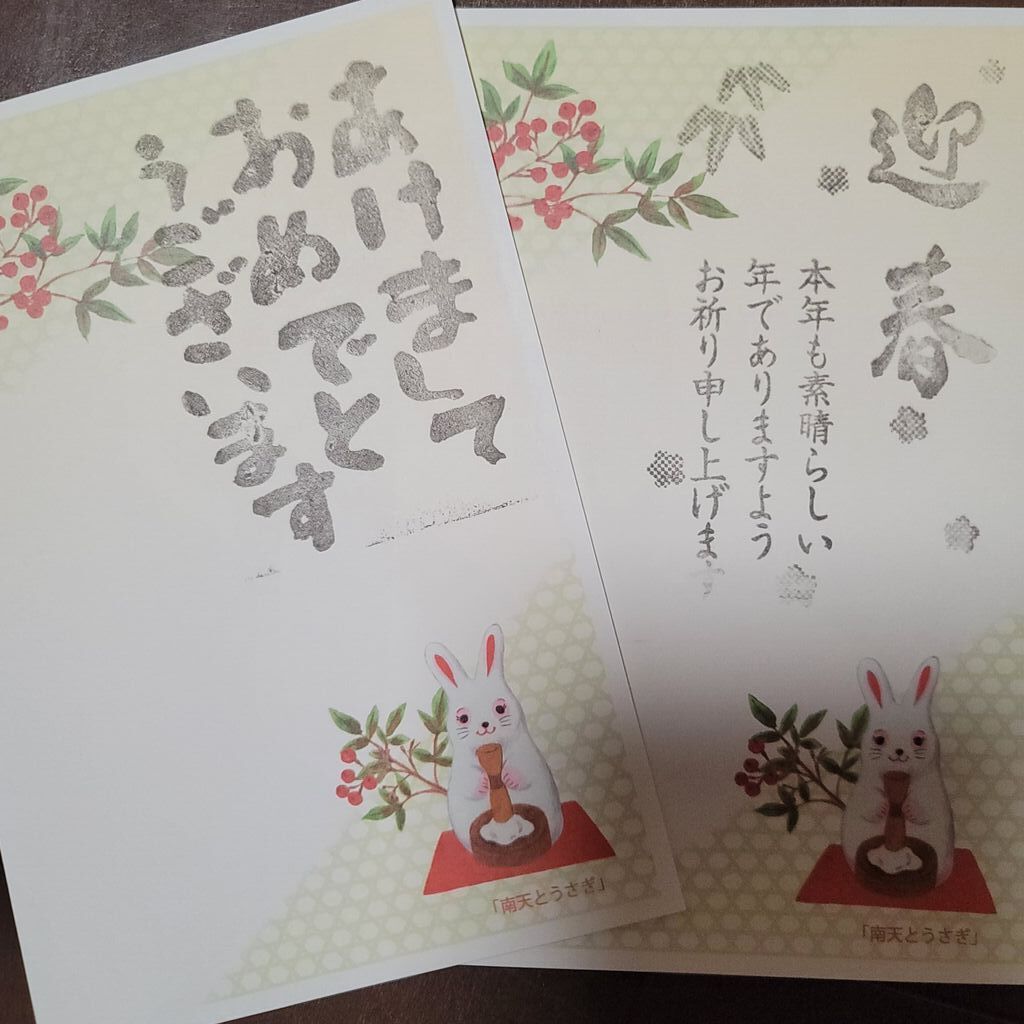 あけまして
おめでと
うございます
「南天とうさぎ」
迎春
本年も素晴らしい
年でありますよう
お祈り申し上げます
「南天とうさぎ」